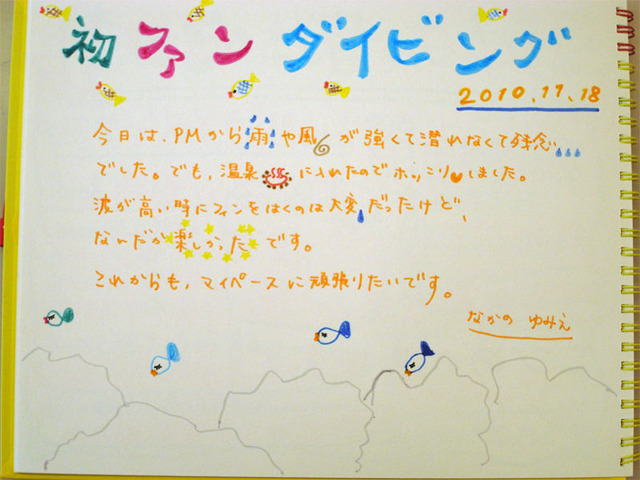 初ファンダイビング
2010.11.18
今日は、PMから雨や風が強くて潜れなくて残念
でした。でも、温泉に入れたのでホッコリしました。
波が高い時にフィンをはくのは大変だったけど、
なんだか楽しかったです。
これからも、マイペースに頑張りたいです。
なかの ゆみえ